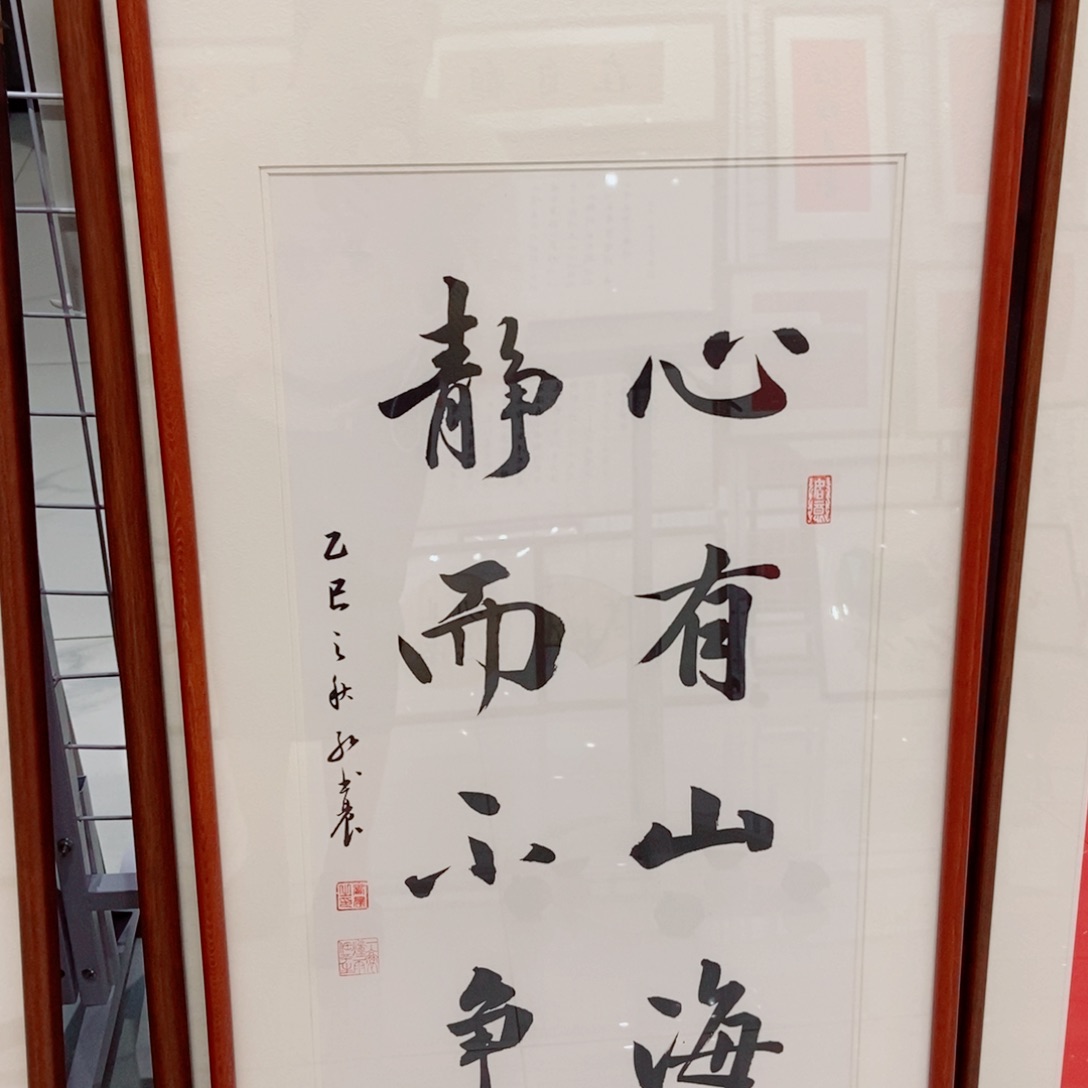 心有山海
静而不争
乙巳之秋